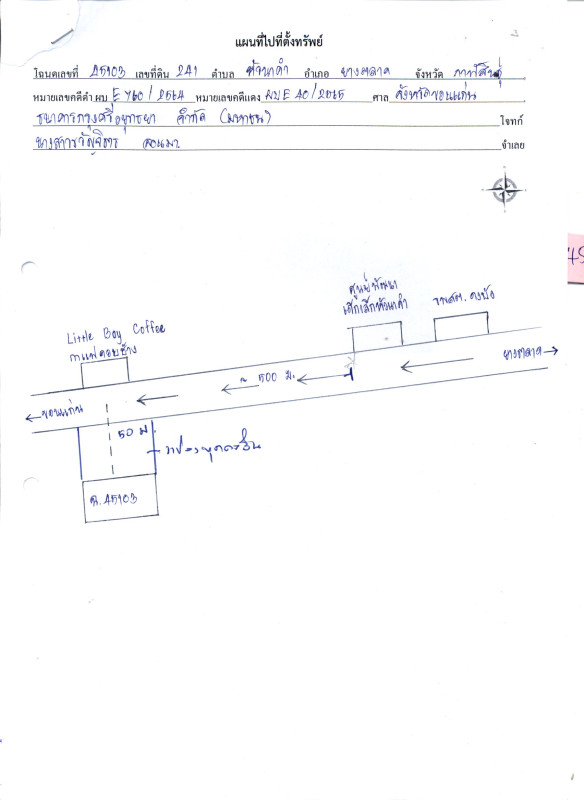 แผนที่ไปที่ตั้งทรัพย์
โฉนดเลขที่ 45103 เลขที่ดิน 241 ตำบล หัวนาคำ อำเภอ ยางตลาด จังหวัด กาฬสินธุ์
หมายเลขคดีดำ ผบ E 760/2564 หมายเลขคดีแดง ผบ E 40/2565 ศาล จังหวัดขอนแก่น
ธนาคารกรุงศรีอยุธยา จำกัด (มหาชน) โจทก์
นางสาว จำเลย
ศูนย์พัฒนา
เด็กเล็กหัวนาคำ
รพสต. ดงบัง
Little Boy Coffee
กาแฟคอยช้าง
ยางตลาด
~ 500 ม.
ขอนแก่น
50 ม.
ฉ.45103